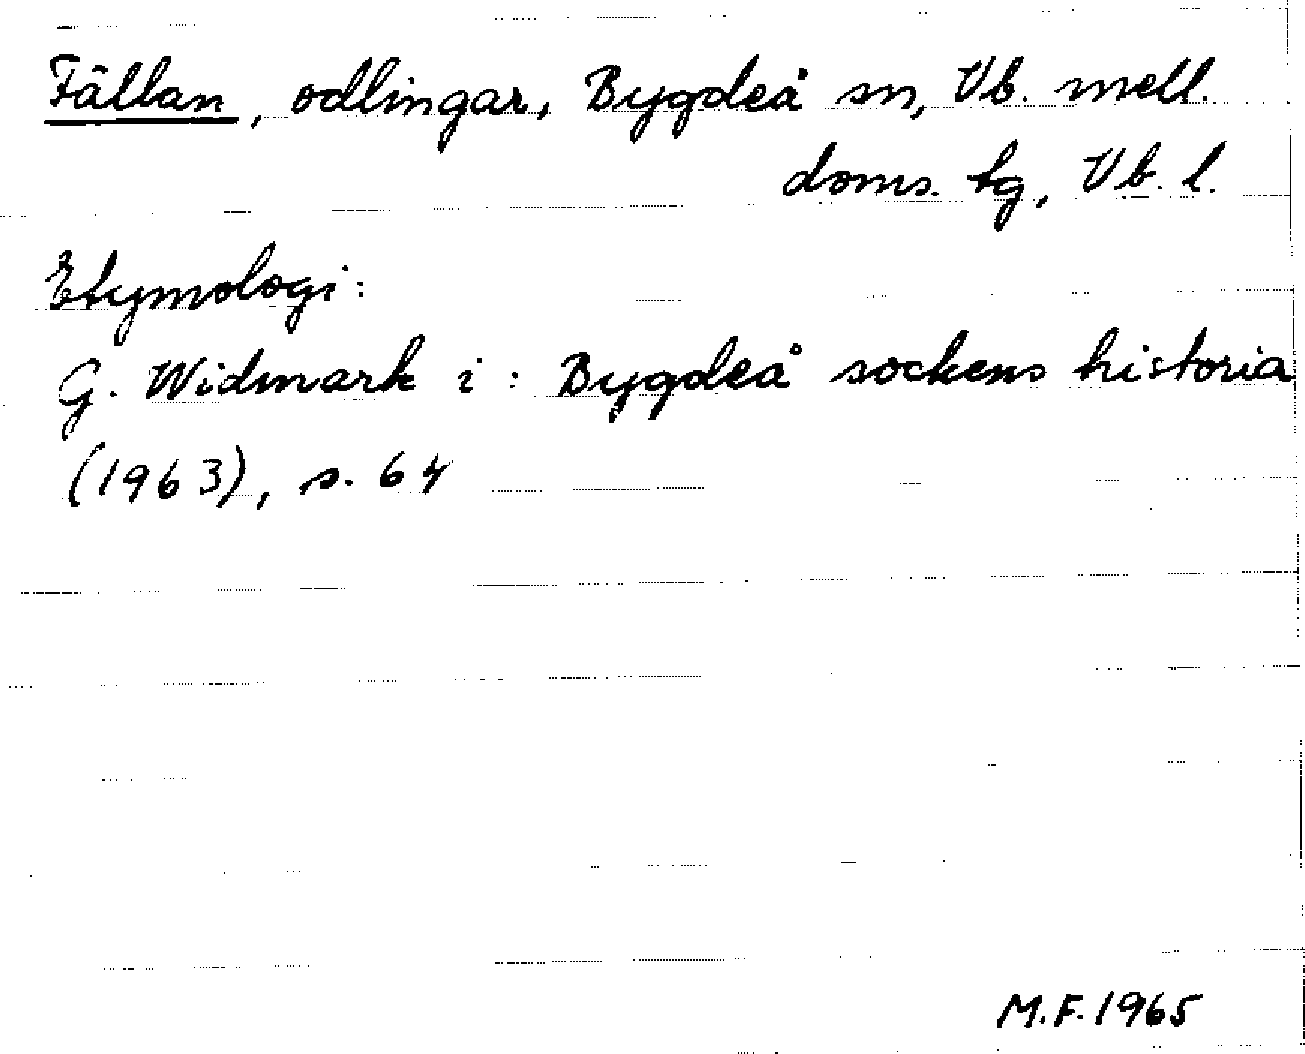 Fällan, odlingar, Bygdeå sn, Vb. mell.
doms. tg, Vb. l.
Etymologi:
G. Widmark i: Bygdeå sockens historia
(1963), s. 64
M.F. 1965